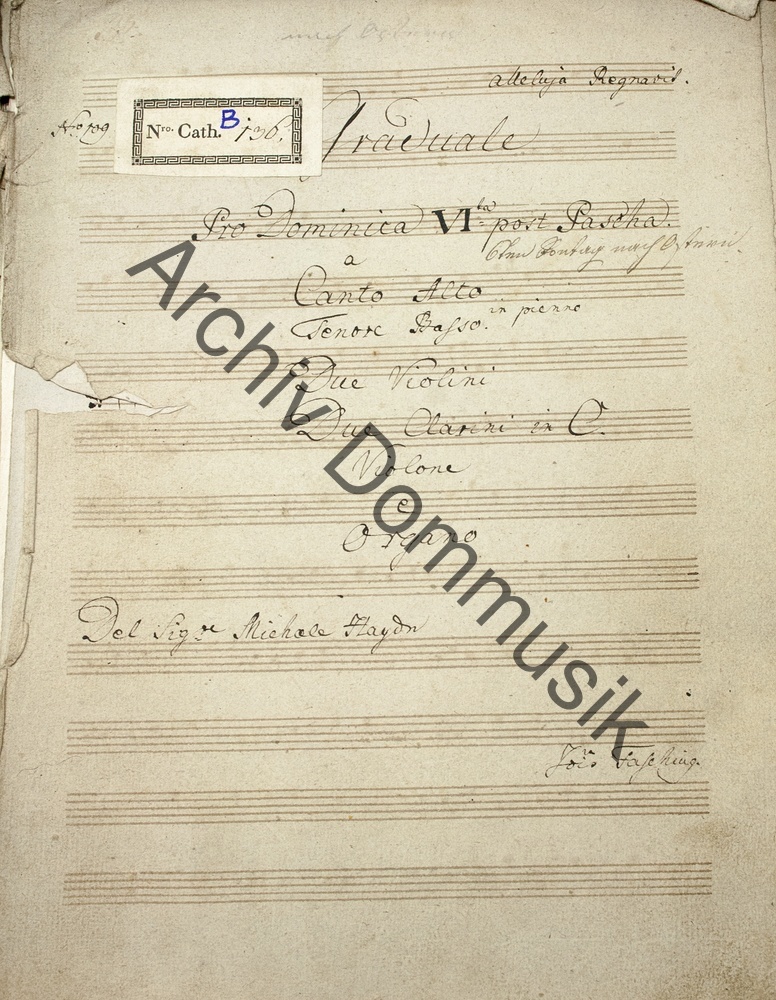 nach Ostern
alleluja Regnavit.
No 109
Nro. Cath. B 136.
Graduale
Pro Dominica VI ta post Pascha.
6ten Sontag nach Ostern
a
Canto Alto
Tenore Basso. in pienno
Due Violini
Due Clarini in C.
Violone
e
Organo
Del Sigre Michæle Haydn
Fasching
Archiv Dommusik